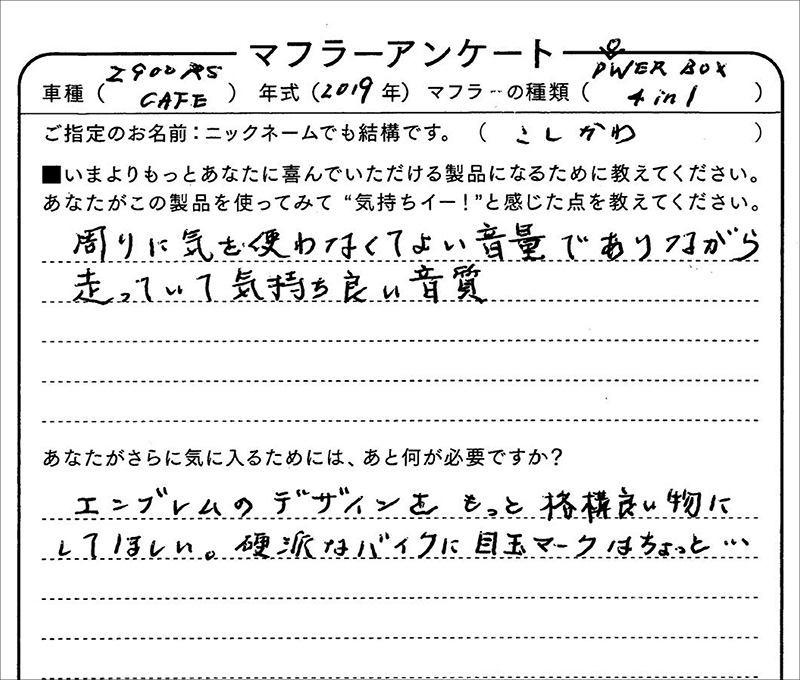 マフラーアンケート
車種（Z900RS CAFE） 年式（2019年） マフラーの種類（POWER BOX 4in1）
ご指定のお名前：ニックネームでも結構です。（こしかわ）
■いまよりもっとあなたに喜んでいただける製品になるために教えてください。
あなたがこの製品を使ってみて“気持ちイー！”と感じた点を教えてください。
周りに気を使わなくてよい音量でありながら
走っていて気持ち良い音質
あなたがさらに気に入るためには、あと何が必要ですか？
エンブレムのデザインをもっと格構良い物に
してほしい。硬派なバイクに目玉マークはちょっと…